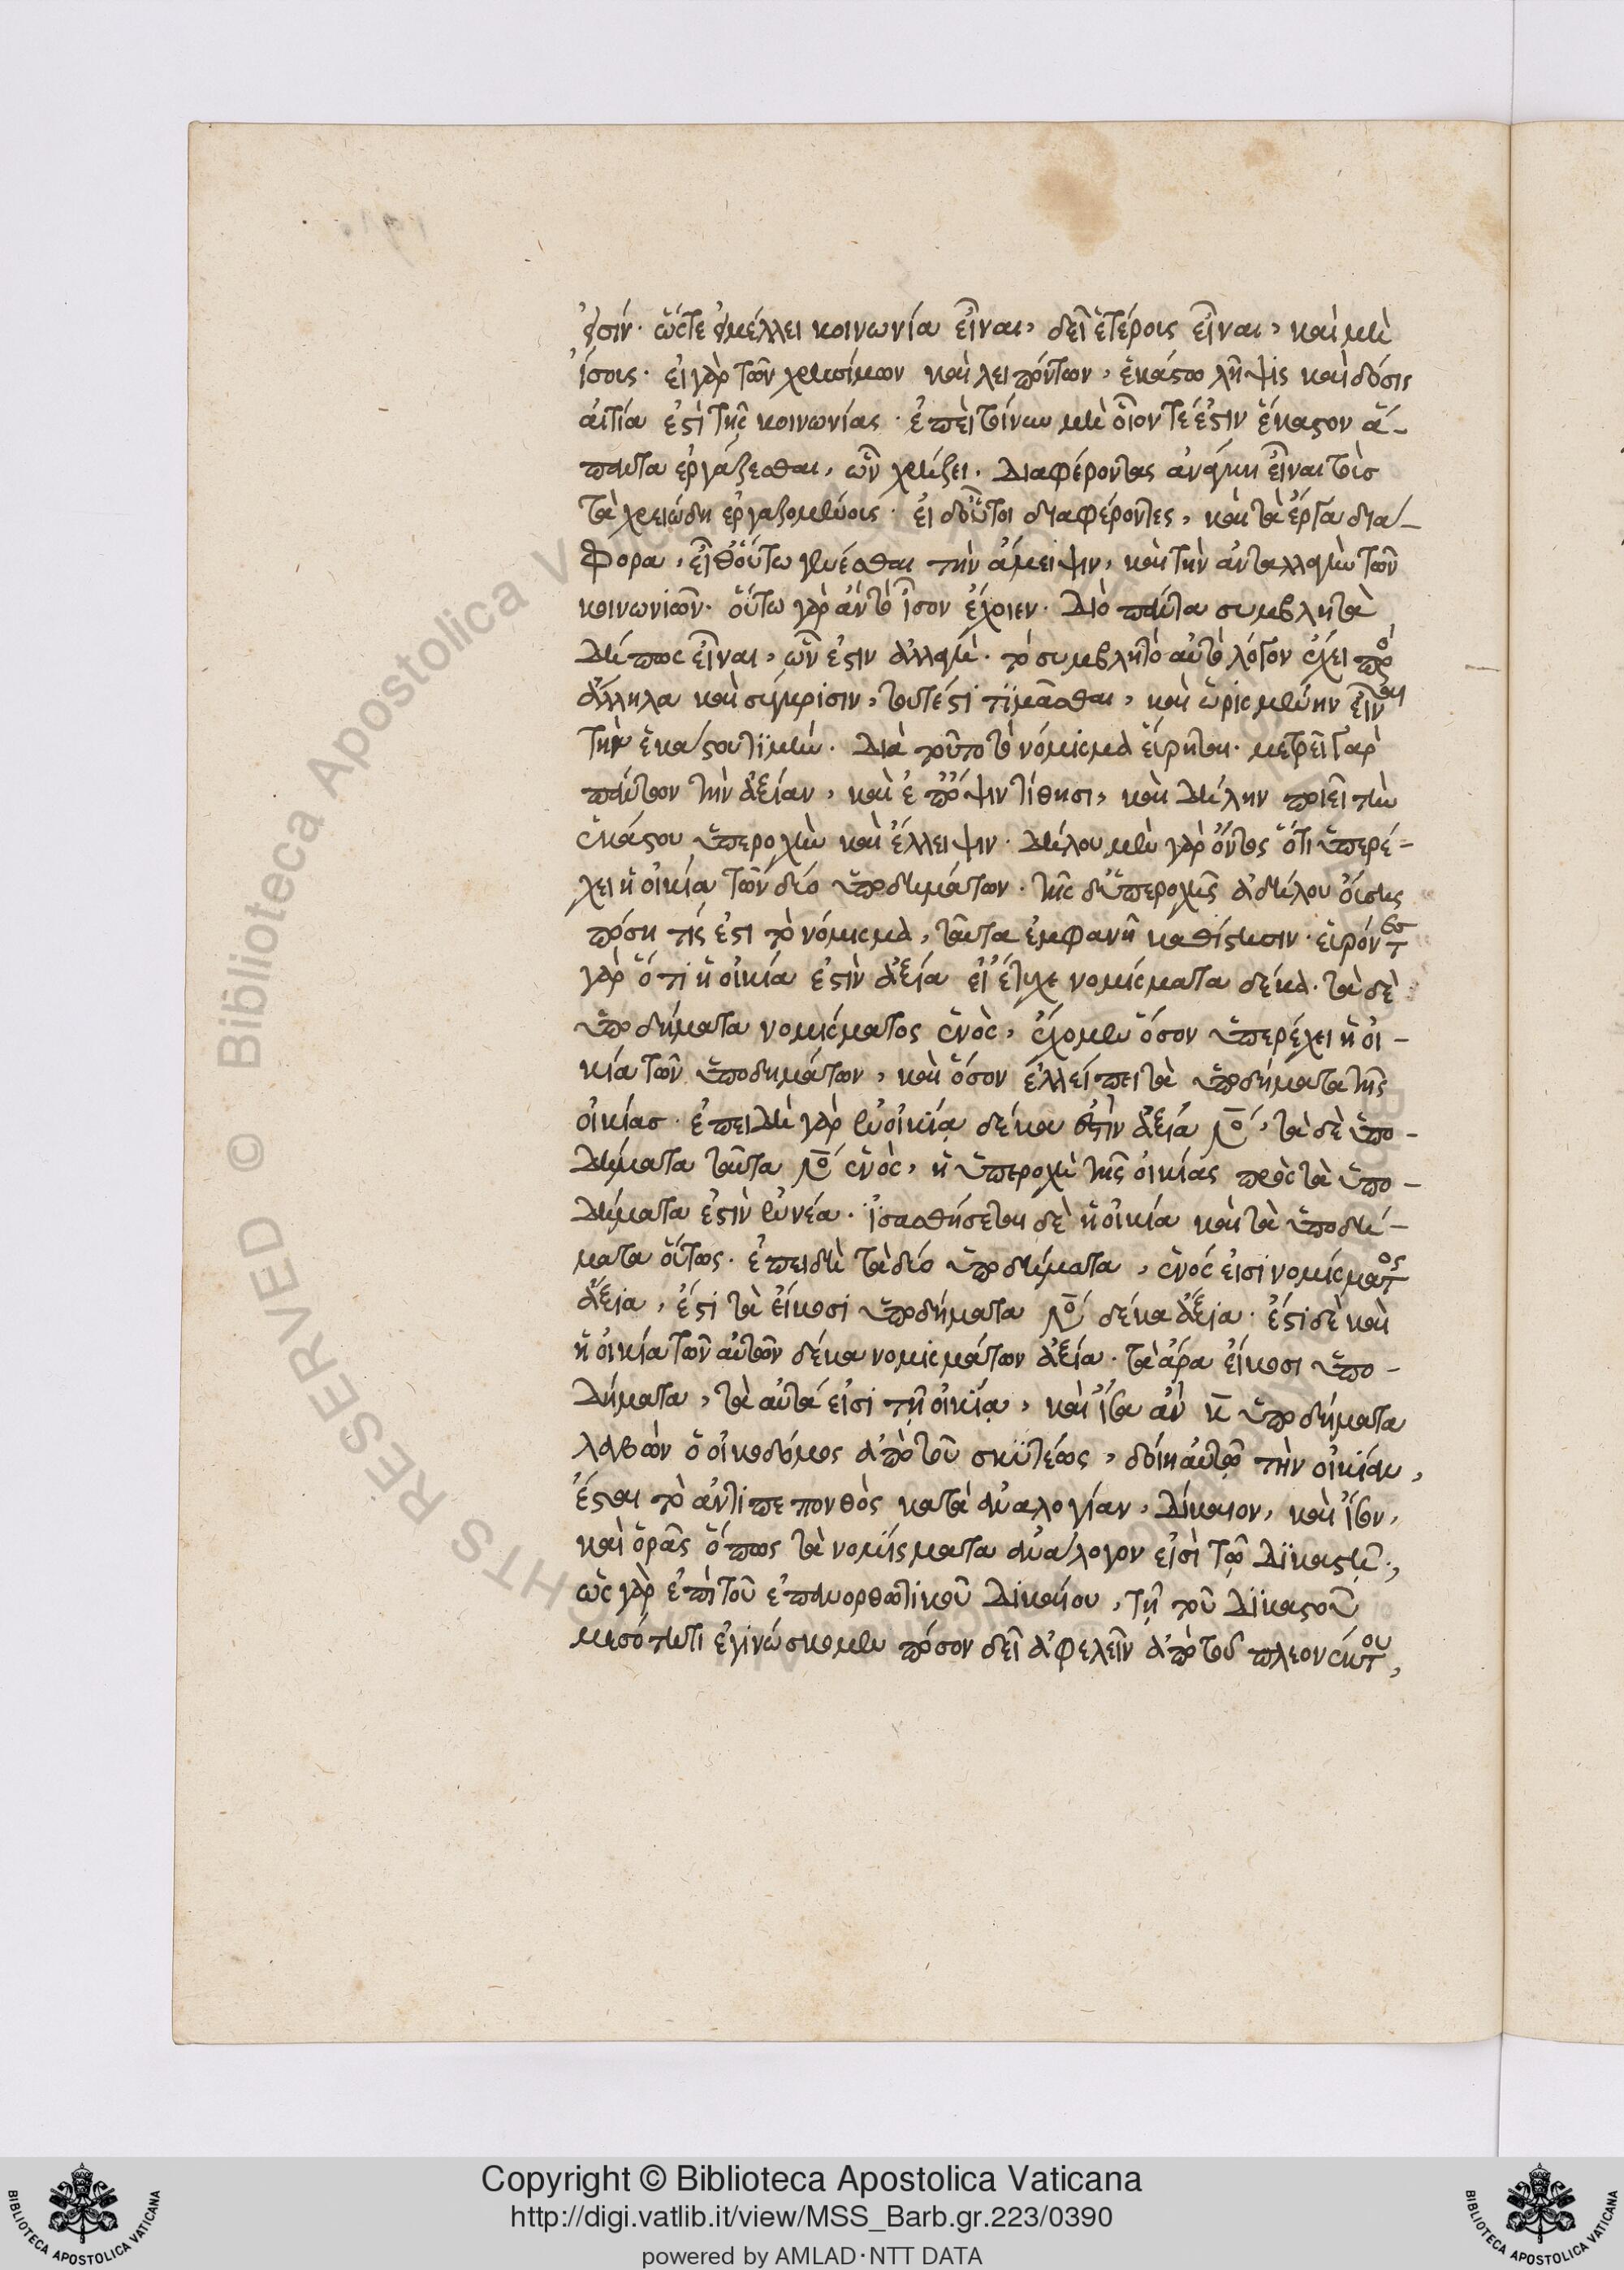 ἐστίν· ὥστε εἰ μέλλει κοινωνία εἶναι, δεῖ ἑτέροις εἶναι, καὶ μὴ
ἴσοις· εἰ γὰρ τῶν χρησίμων καὶ λειπόντων, ἑκάστω λῆψις καὶ δόσις
αἰτία ἐστὶ τῆς κοινωνίας· ἐπεὶ τοίνυν μὴ οἷόν τέ ἐστιν ἕκαστον ἅ-
παντα ἐργάζεσθαι, ὧν χρήζει. Διαφέροντας ἀνάγκη εἶναι τοὺς
τὰ χρειώδη ἐργαζομένοις· εἰ δ' οὗτοι διαφέροντες, καὶ τὰ ἔργα διά-
φορα, εἶθ' οὕτω γενέσθαι τὴν ἄμειψιν, καὶ τὴν ἀνταλλαγὴν τῶν
κοινωνιῶν· οὕτω γὰρ ἂν τὸ ἴσον ἔχοιεν· Διὸ πάντα συμβλητὰ
δεῖ πως εἶναι, ὧν ἐστιν ἀλλαγή· τὸ συμβλητὸ αὐτὸ λόγον ἔχει πρὸς
ἄλληλα καὶ σύγκρισιν, τουτέστι τιμᾶσθαι, καὶ ὡρισμένην εἶναι
τὴν ἑκάστου τιμήν· Διὰ τοῦτο τὸ νόμισμα εἴρηται· μετρεῖ γὰρ
πάντων τὴν ἀξίαν, καὶ ἐπ' ὄψιν τίθησι, καὶ δήλην ποιεῖ τὴν
ἑκάστου ὑπεροχὴν καὶ ἔλλειψιν· Δήλου μὲν γὰρ ὄντος ὅτι ὑπερέ-
χει ἡ οἰκία τῶν δύο ὑποδημάτων· τῆς δ' ὑπεροχῆς ἀδήλου οὔσης
πόση τίς ἐστι τὸ νόμισμα, ταῦτα ἐμφανῆ καθίστησιν· εὑρόντες
γὰρ ὅτι ἡ οἰκία ἐστὶν ἀξία εἰ ἔτυχε νομίσματα δέκα· τὰ δὲ
ὑποδήματα νομίσματος ἑνὸς, ἔχομεν ὅσον ὑπερέχει ἡ οἰ-
κία τῶν ὑποδημάτων, καὶ ὅσον ἐλλείπει τὰ ὑποδήματα τῆς
οἰκίας· ἐπειδὴ γὰρ ἐν οἰκίᾳ δέκα ἐστὶν ἀξία νο, τὰ δὲ ὑπο-
δήματα ταῦτα νο ἑνὸς, ἡ ὑπεροχὴ τῆς οἰκίας πρὸς τὰ ὑπο-
δήματα ἐστὶν ἐννέα· ἰσασθήσεται δὲ ἡ οἰκία καὶ τὰ ὑποδή-
ματα οὕτως· ἐπειδὴ τὰ δύο ὑποδήματα, ἑνός εἰσι νομίσματος
ἄξια, ἔστι τὰ εἴκοσι ὑποδήματα νο δέκα ἄξια· ἔστι δὲ καὶ
ἡ οἰκία τῶν αὐτῶν δέκα νομισμάτων ἀξία· τὰ ἄρα εἴκοσι ὑπο-
δήματα, τὰ αὐτά εἰσι τῇ οἰκίᾳ, καὶ ἴσα ἂν κ̅ ὑποδήματα
λαβὼν ὁ οἰκοδόμος ἀπὸ τοῦ σκυτέως, δοίη αὐτῷ τὴν οἰκίαν,
ἔσται τὸ ἀντιπεπονθὸς κατὰ ἀναλογίαν, Δίκαιον, καὶ ἴσον,
καὶ ὁρᾷς ὅπως τὰ νομίσματα ἀνάλογον εἰσὶ τῷ Δικαστῇ,
ὡς γὰρ ἐπὶ τοῦ ἐπανορθωτικοῦ Δικαίου, τῇ τοῦ Δικαστοῦ
μεσότητι ἐγινώσκομεν πόσον δεῖ ἀφελεῖν ἀπὸ τοῦ πλεονέκτου,
Copyright © Biblioteca Apostolica Vaticana
http://digi.vatlib.it/view/MSS_Barb.gr.223/0390
powered by AMLAD·NTT DATA